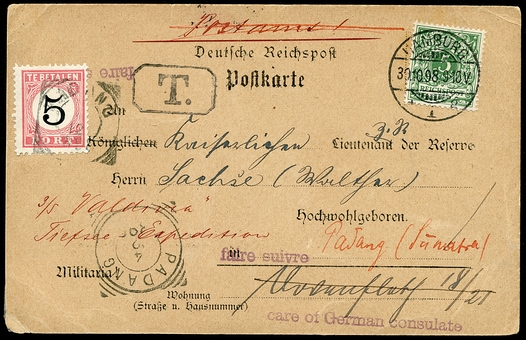 Postamt!
Deutsche Reichspost
Postkarte
TE BETALEN
5
PORT
T.
HAMBURG
30.10.98.9-10V.
1
5
An
Königlichen Kaiserlichen Lieutenant der Reserve
z. R
Herrn Sachse (Walther)
Hochwohlgeboren.
S/S "Valdivia"
Tiefsee Expedition
Padang (Sumatra)
in
faire suivre
PADANG
Militaria
Wohnung
(Straße u. Hausnummer)
18/21
care of German consulate